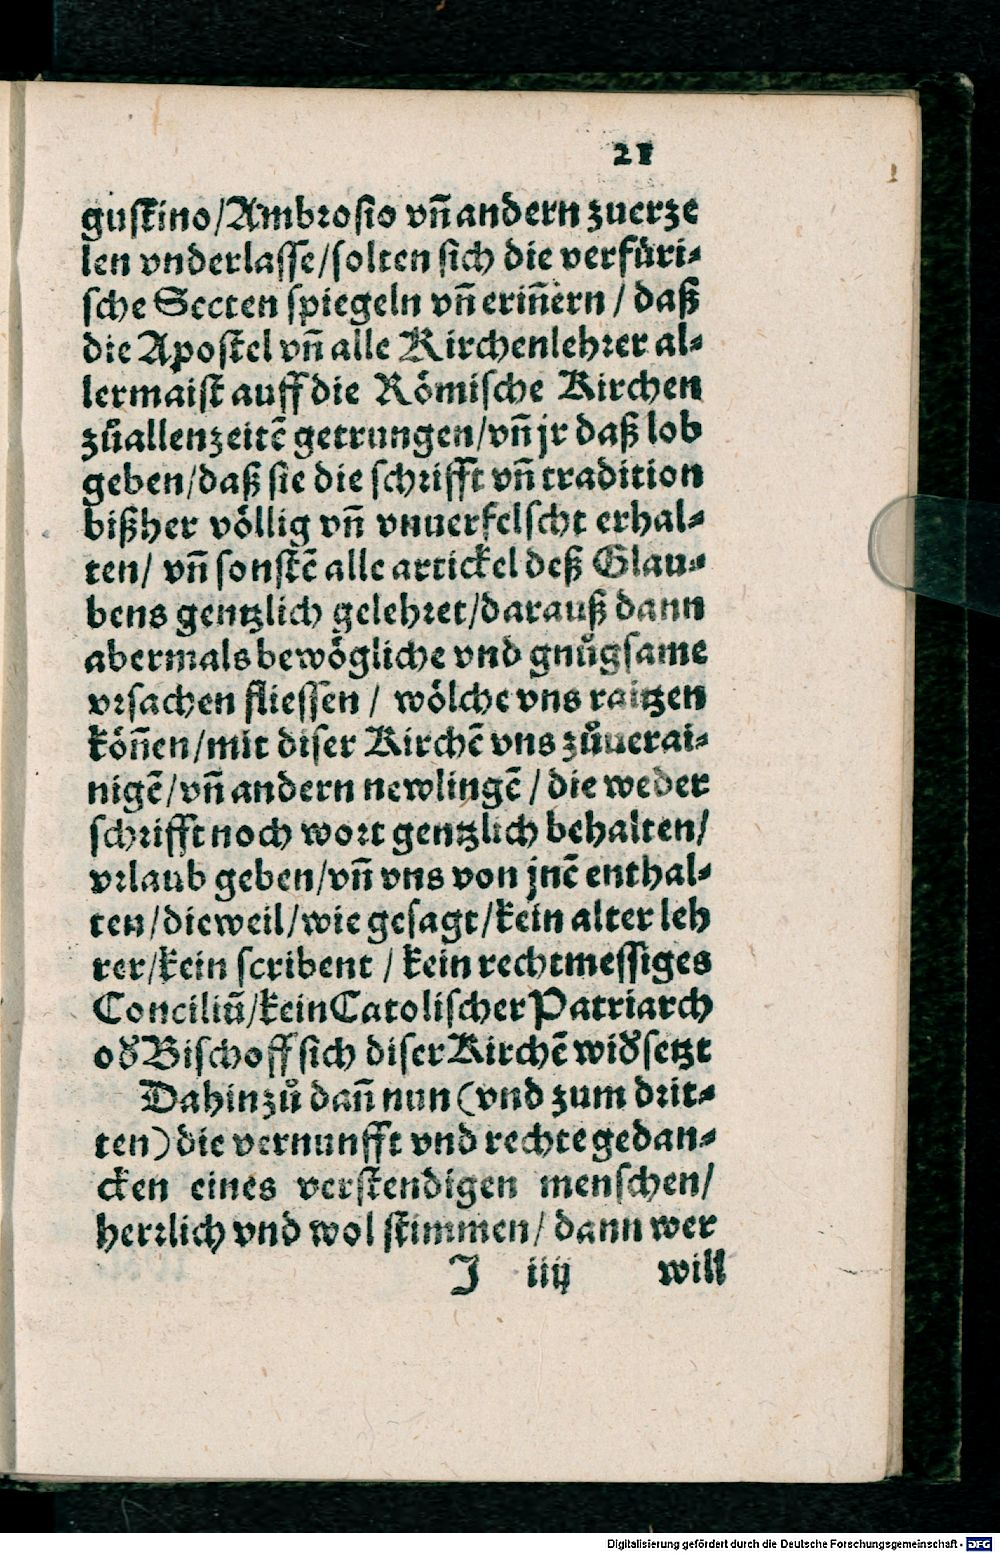 21
gustino/Ambrosio vñ andern zuerze
len vnderlasse/solten sich die verfüri⸗
sche Secten spiegeln vñ erin̄ern / daß
die Apostel vñ alle Kirchenlehrer al⸗
lermaist auff die Römische Kirchen
zůallenzeitē getrungen/vñ jr daß lob
geben/daß sie die schrifft vñ tradition
bißher völlig vñ vnuerfelscht erhal⸗
ten/ vñ sonstē alle artickel deß Glau⸗
bens gentzlich gelehret/darauß dann
abermals bewögliche vnd gnůgsame
vrsachen fliessen / wölche vns raitzen
kön̄en/mit diser Kirchē vns zůuerai⸗
nigē/vñ andern newlingē / die weder
schrifft noch wort gentzlich behalten/
vrlaub geben/vñ vns von jnē enthal⸗
ten/dieweil/wie gesagt/kein alter leh
rer/kein scribent / kein rechtmessiges
Conciliū/kein Catolischer Patriarch
od' Bischoff sich diser Kirchē wid'setzt
Dahinzů dan̄ nun (vnd zum drit⸗
ten) die vernunfft vnd rechte gedan⸗
cken eines verstendigen menschen/
herrlich vnd wol stimmen/ dann wer
J iiij will
Digitalisierung gefördert durch die Deutsche Forschungsgemeinschaft - DFG